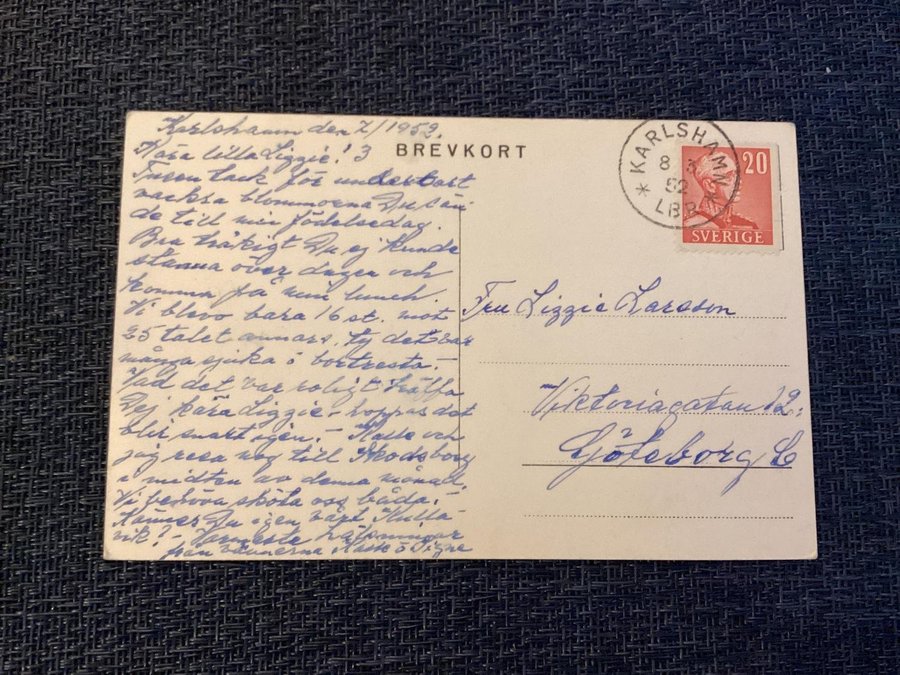 Karlshamn den 7/3 1952.
Kära lilla Lizzie!
Tusen tack för underbart
vackra blommorna Du sän
de till min födelsedag.
Bra tråkigt Du ej kunde
stanna över dagen och
komma på min lunch.
Vi blevo bara 16 st. mot
25 talet annars, ty det var
många sjuka o bortresta. –
Vad det var roligt träffa
Dej kära Lizzie – hoppas det
blir snart igen. – Kalle och
jag resa nog till Skodsborg
i midten av denna månad.
Vi behöva sköta oss båda. –
Känner Du igen vårt Kulla
vik? – Varmaste hälsningar
från vännerna Kalle o Signe
BREVKORT
KARLSHAMN
8 3
52
LBR 1
20
SVERIGE
Fru Lizzie Larsson
Viktoriagatan 12.
Göteborg C